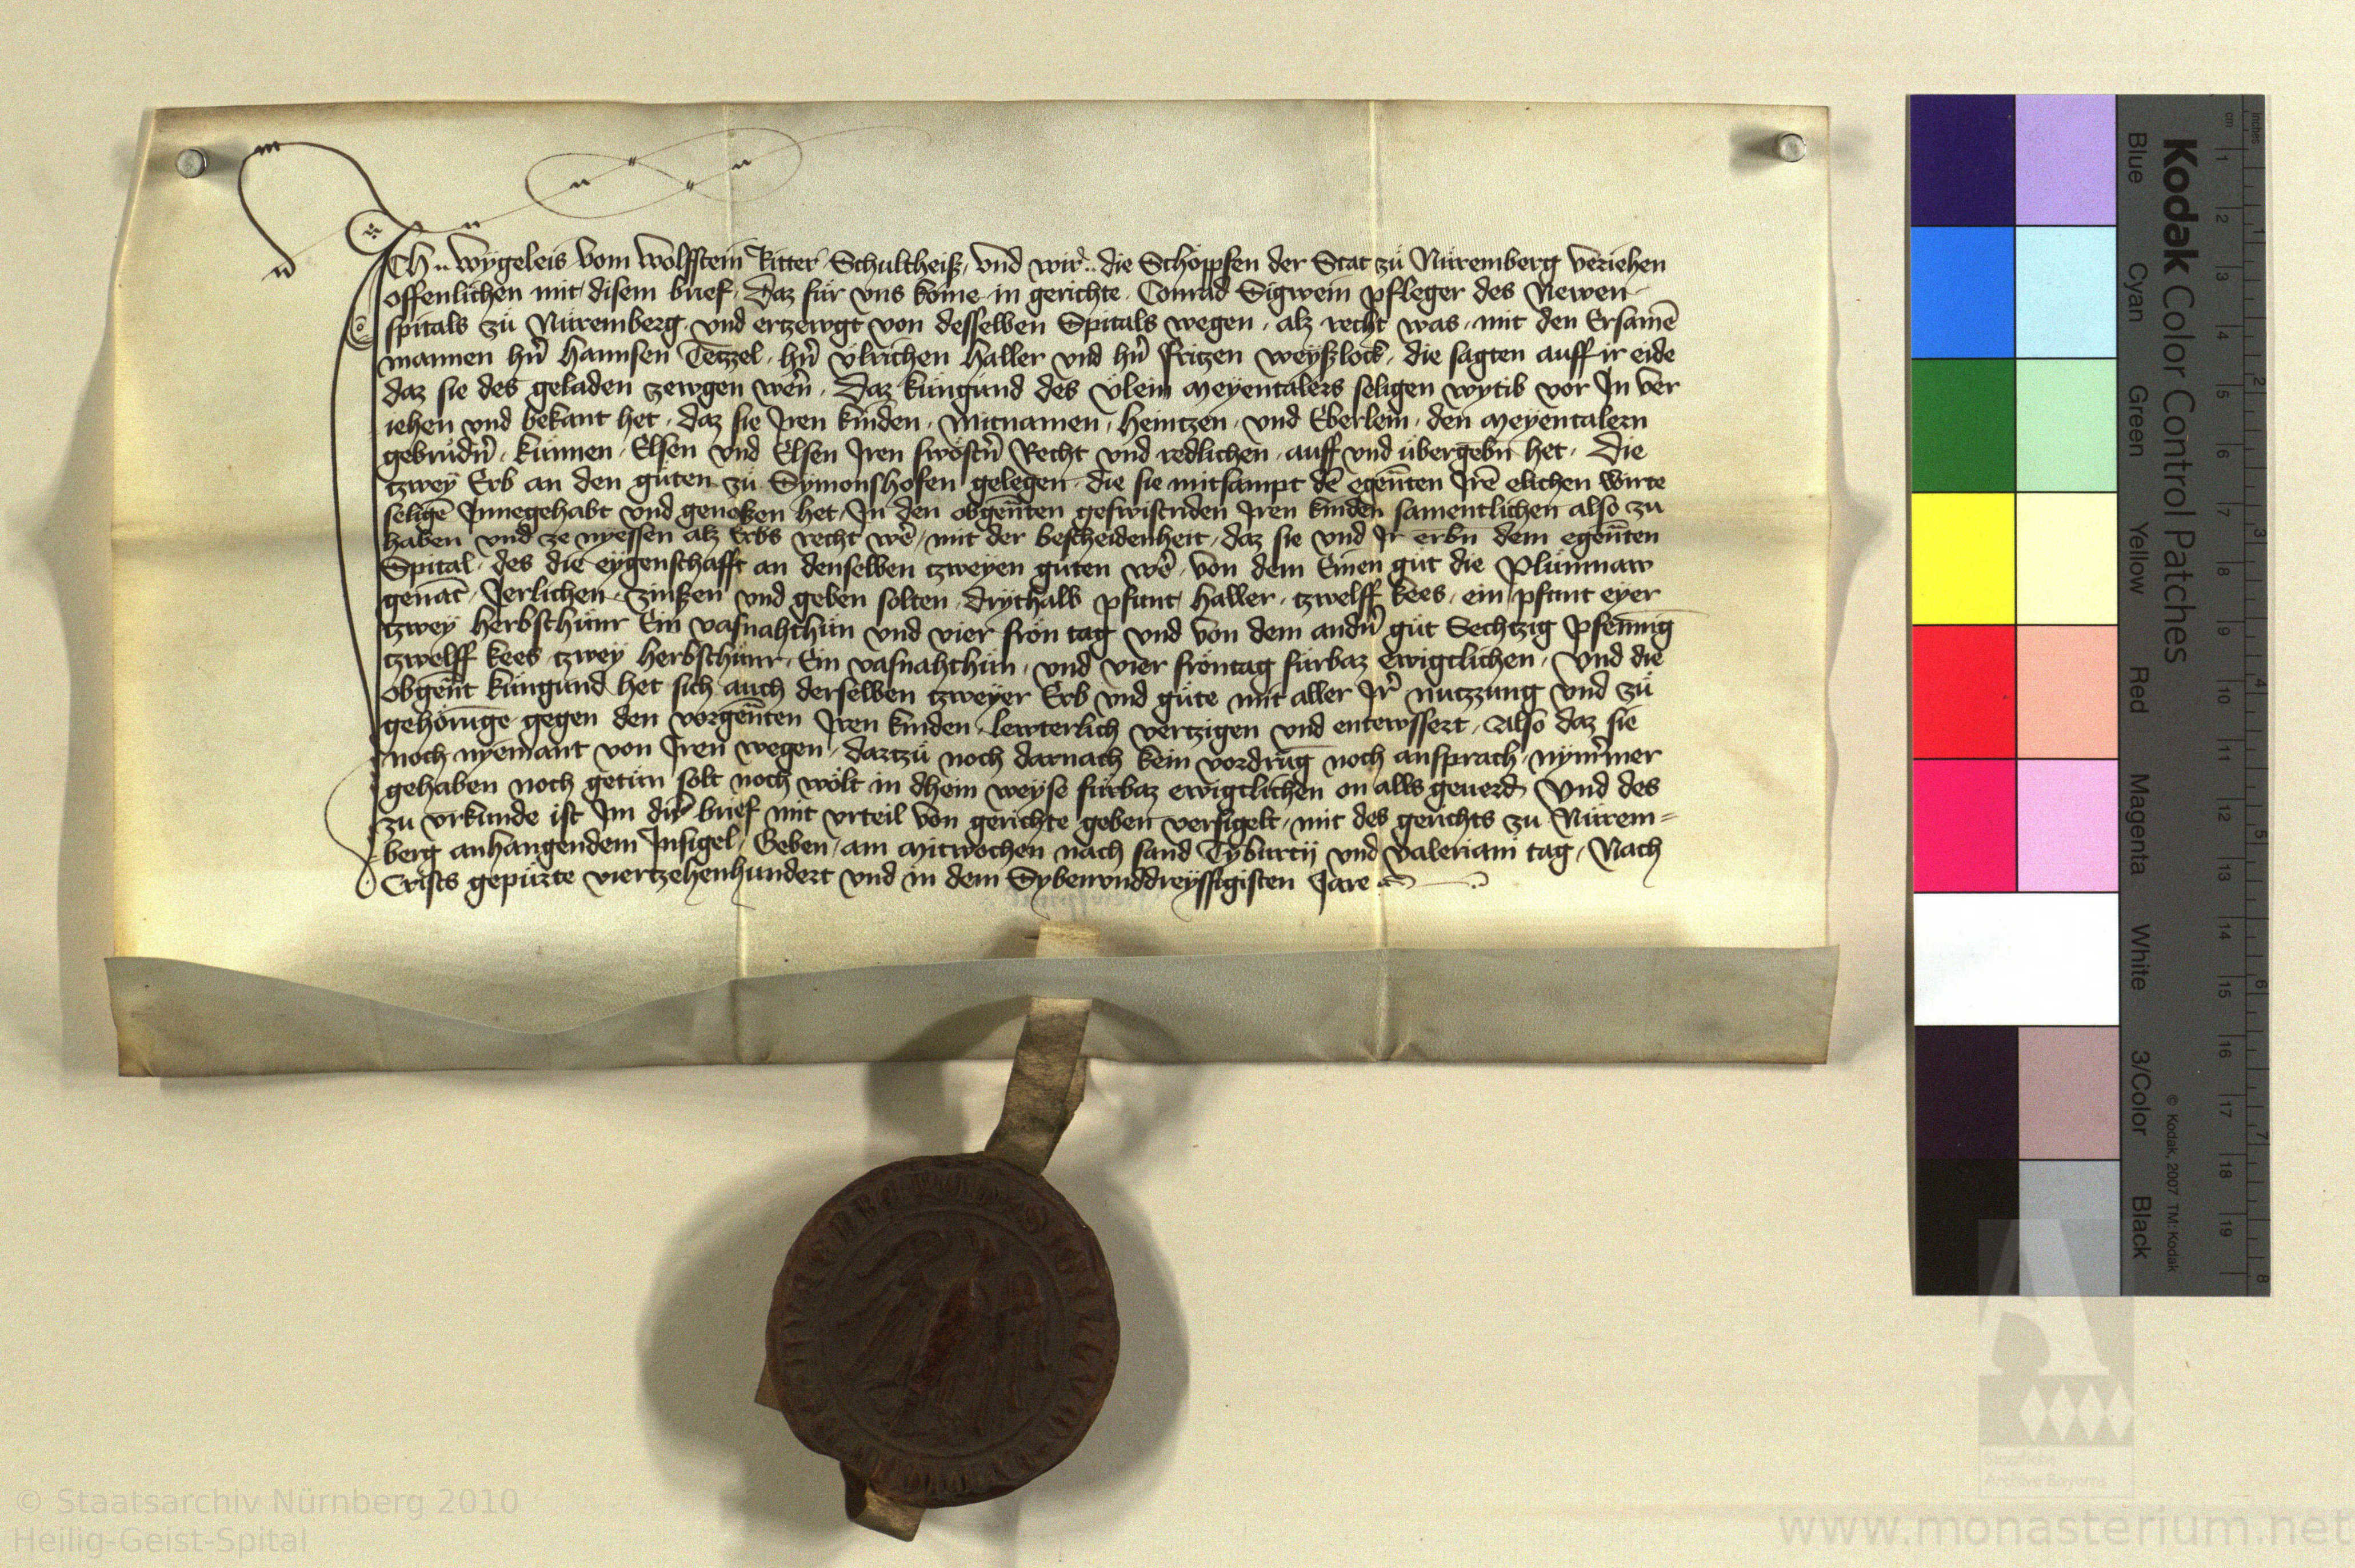 ICH Wygeleis vom Wolffstein Ritter Schultheiß, vnd wir die Schöpfen der Stat zů Nůremberg veriehen
offenlichen mit disem brief, Daz für vns kome in gerichte Conrad Sigwein pfleger des Newen
spitals zů Nůremberg, vnd ertzewgt von desselben Spitals wegen, alz recht was, mit den Ersamē
mannen hern̄ Hannsen Tetzel, hern̄ Vlrichen Haller vnd hern̄ Fritzen Weyßlock, die sagten auff ir eide
daz sie des geladen zewgen wern̄, Daz Kůngund des Vlein Meyentalers seligen wytib vor In ver
iehen vnd bekant het, daz sie Iren kinden, Mitnamen, Heintzen, vnd Eberlein, den Meyentalern
gebrůdern̄, Kůnnen, Elsen vnd Elsen Iren swöstern̄ Recht vnd redlichen, auff vnd übergebn̄ het, Die
tzwey Erb an den gůten zů Symonshofen gelegen, die sie mitsampt dē egen̄ten Irē elichen wirte
seligē Innegehabt vnd genoßen het, In den obgen̄ten geswistriden Iren kinden samentlichen also zu
haben vnd ze nyessen alz Erbs recht wer̄, mit der bescheidenheit, daz sie vnd Ir erbn̄ dem egen̄ten
Spital, des die eygenschafft an denselben tzweyen gůten wer̄, von dem Einen gůt die Plůmnaw
genāt, Ierlichen, zinßen vnd geben solten, drythalb pfunt haller, tzwelff kees, ein pfunt eyer
tzwey herbsthůnr Ein vasnahthůn vnd vier frön tag vnd von dem andern̄ gůt Sechtzig pfennig
tzwelff kees, tzwey herbsthůnr, Ein vasnahthůn, vnd vier fröntag fürbaz ewigclichen, Vnd die
obgen̄t Kůngund het sich auch derselben tzweyer Erb vnd gůte mit aller Ir̄ nutzzung vnd zů
gehörūge gegen den vorgen̄ten Iren kinden, lewterlich vertzigen vnd entewssert, Also daz sie
noch nyemant von Iren wegen, dartzů noch darnach kein vordrūg noch ansprach, nym̄mer
gehaben noch getůn solt noch wölt in dhein weyse fürbaz ewigclichen on alls geuerd, Vnd des
zu vrkunde ist Im dir̄ brief mit vrteil von gerichte geben versigelt, mit des gerichts zu Nůrem=
berg anhangendem Insigel, Geben, am Mitwochen nach sand Tyburcij vnd Valeriani tag, Nach
Crists gepürte viertzehenhundert vnd in dem Sybenvnddreyssigisten Jare
Kodak Color Control Patches
Blue Cyan Green Yellow Red Magenta White 3/Color Black
© Kodak, 2007 TM: Kodak
cm 1 2 3 4 5 6 7 8 9 10 11 12 13 14 15 16 17 18 19
inches 1 2 3 4 5 6 7 8
Staatliche
Archive Bayerns
© Staatsarchiv Nürnberg 2010
Heilig-Geist-Spital
www.monasterium.net